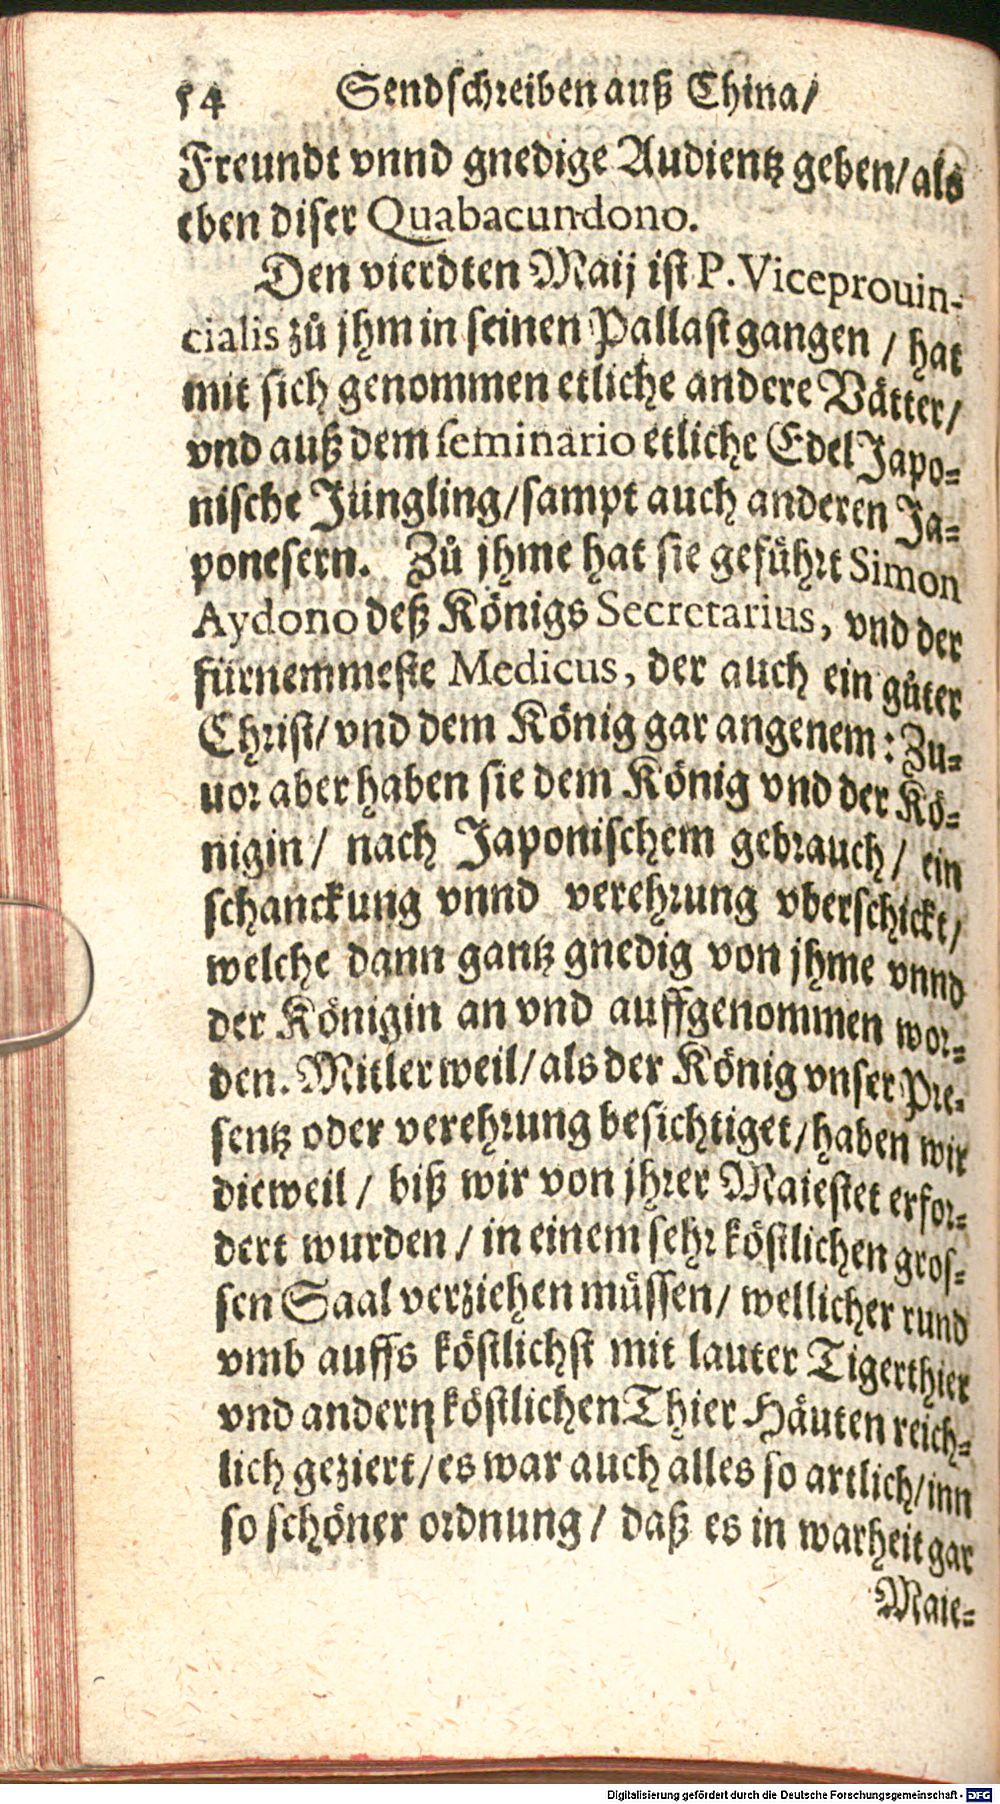 54 Sendschreiben auß China/
Freundt vnnd gnedige Audientz geben/ als
eben diser Quabacundono.
Den vierdten Maij ist P. Viceprouin-
cialis zů jhm in seinen Pallast gangen / hat
mit sich genommen etliche andere Vätter/
vnd auß dem seminario etliche Edel Japo-
nische Jüngling/ sampt auch anderen Ja-
ponesern. Zů jhme hat sie geführt Simon
Aydono deß Königs Secretarius, vnd der
fürnemmeste Medicus, der auch ein gůter
Christ/ vnd dem König gar angenem: Zu-
uor aber haben sie dem König vnd der Kö-
nigin/ nach Japonischem gebrauch/ ein
schanckung vnnd verehrung vberschickt/
welche dann gantz gnedig von jhme vnnd
der Königin an vnd auffgenommen wor-
den. Mitlerweil/ als der König vnser Pre-
sentz oder verehrung besichtiget/ haben wir
dieweil / biß wir von jhrer Maiestet erfor-
dert wurden / in einem sehr köstlichen gros-
sen Saal verziehen müssen/ wellicher rund
vmb auffs köstlichst mit lauter Tigerthier
vnd andern köstlichen Thier Häuten reich-
lich geziert/ es war auch alles so artlich/ inn
so schöner ordnung / daß es in warheit gar
Maie-
Digitalisierung gefördert durch die Deutsche Forschungsgemeinschaft - DFG